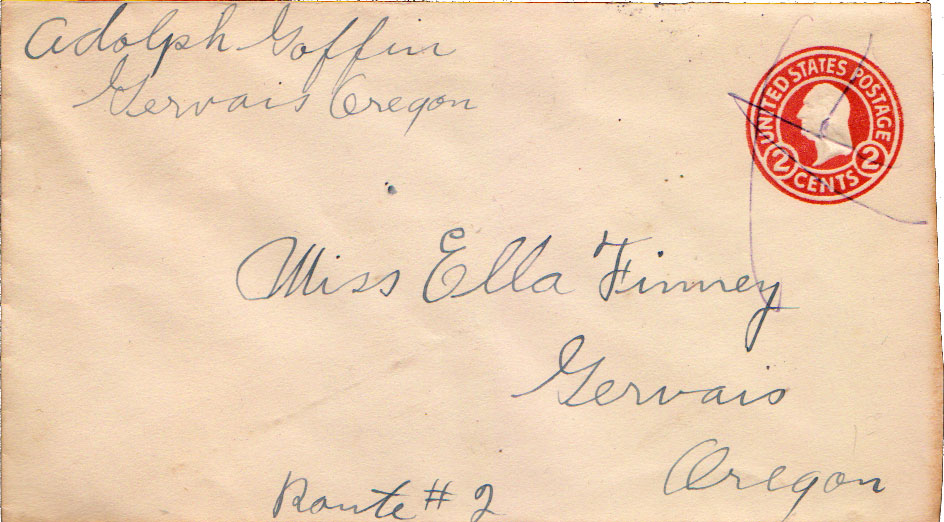 Adolph Goffin
Gervais Oregon
UNITED STATES POSTAGE
2 CENTS 2
Miss Ella Finney
Gervais
Oregon
Route # 2